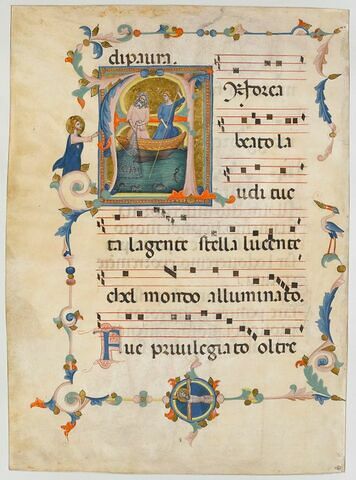 di paura.
beato la
udi tue
ta la gente stella lucente
chel mondo alluminato.
Fue priuilegiato oltre